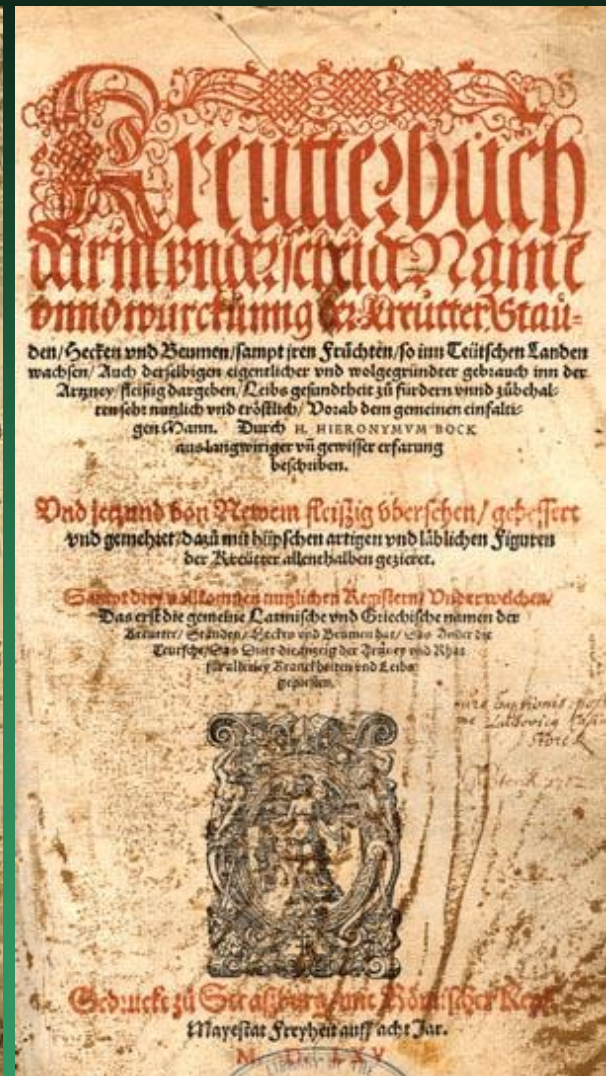 Kreütterbůch
darin vnderscheid Namē
vnnd würckung der Kreütter Stau=
den/Hecken vnd Beumen/sampt jren Früchten/so inn Teütschen Landen
wachsen/Auch derselbigen eigentlicher vnd wolgegründter gebrauch inn der
Artzney/fleißig dargeben/Leibs gesundtheit zů fürdern vnnd zůbehal-
ten sehr nutzlich vnd tröstlich/Vorab dem gemeinen einfalti-
gen Mann. Durch H. HIERONYMVM BOCK
aus langwiriger vñ gewisser erfarung
beschriben.
Vnd jetzund von Newem fleißig übersehen/gebessert
vnd gemehret/dazů mit hüpschen artigen vnd läblichen Figuren
der Kreütter allenthalben gezieret.
Sampt drey vollkommen nutzlichen Registern/Vnder welchen/
Das erst die gemeine Latinische vnd Griechische namen der
Kreutter/Stauden/Hecken vnd Beumen hat/Das Ander die
Teutsche/Das Dritt die anzeig der Artzney vnd Rhat
für allerley Kranckheiten vnd Leibs
gepresten.
Storck
1712
Gedruckt zů Straßburg/mit Römischer Key.
Mayestat Freyheit auff acht Jar.
M. D. LXV